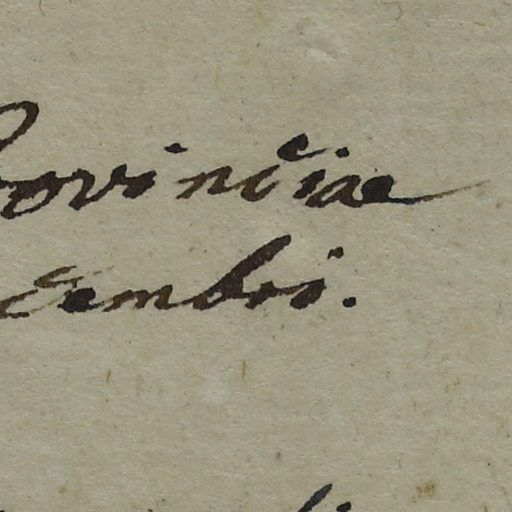 rovinciae
cembris.